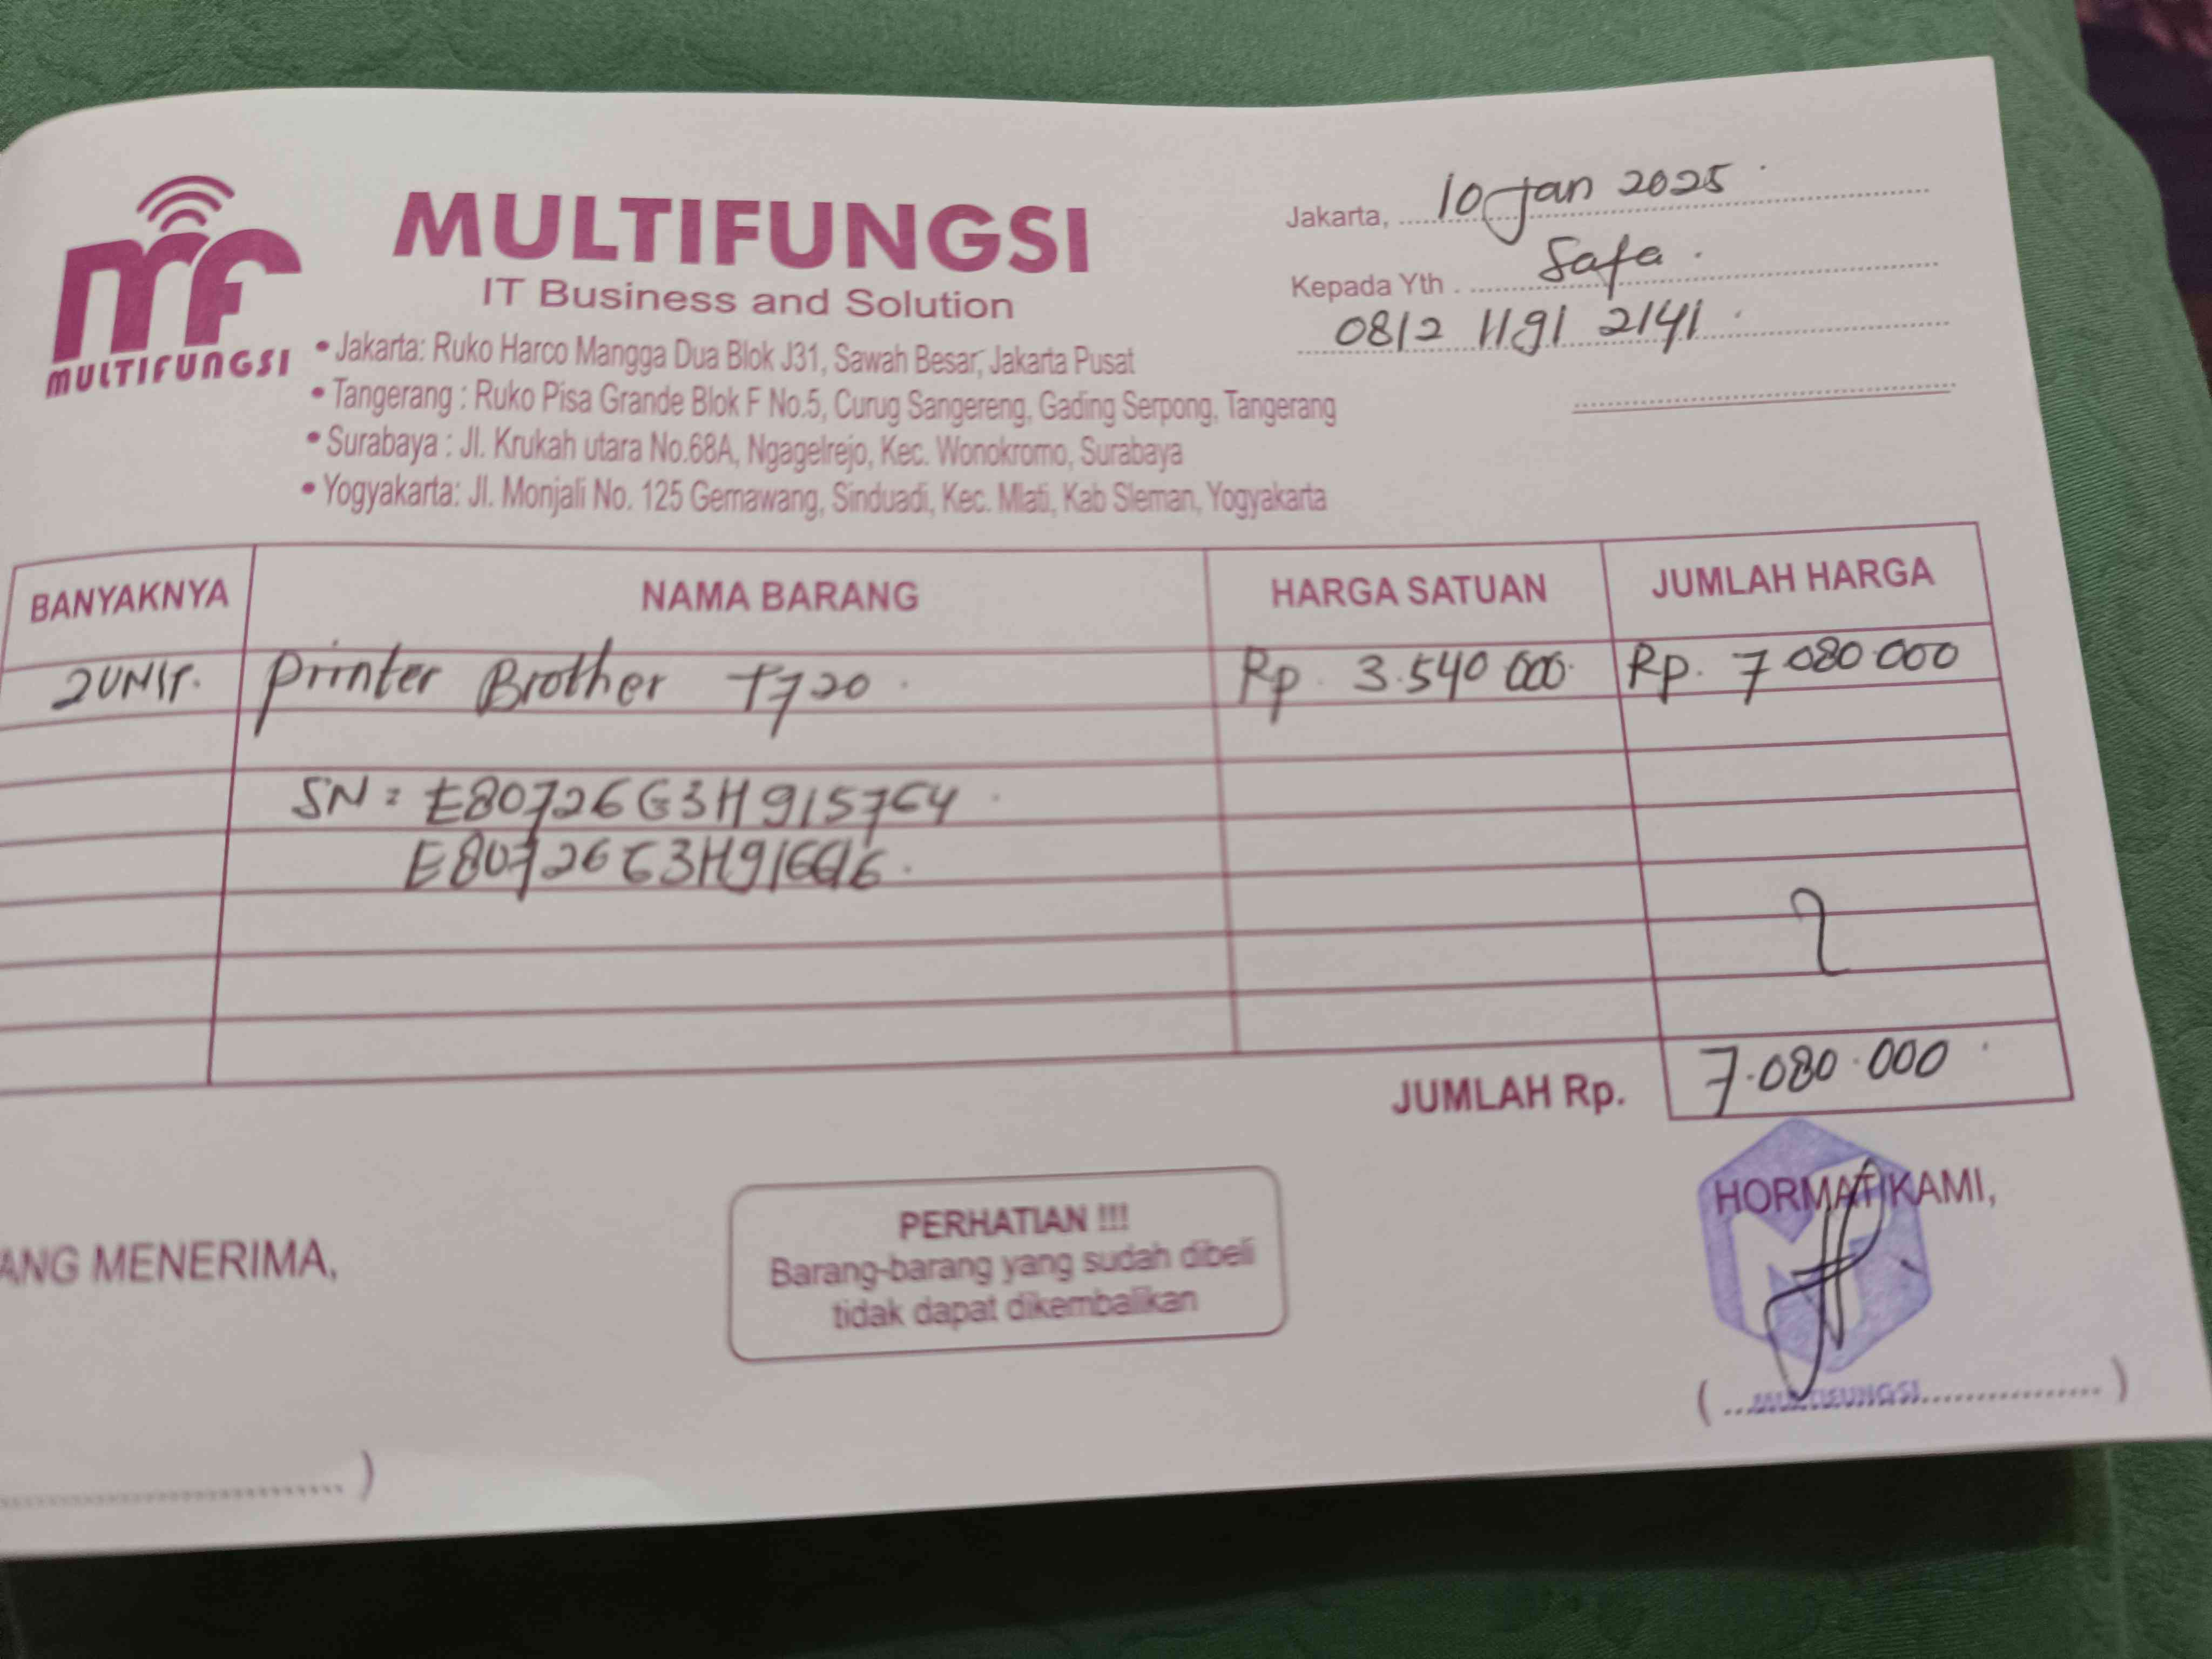 mf
MULTIFUNGSI
MULTIFUNGSI
IT Business and Solution
• Jakarta: Ruko Harco Mangga Dua Blok J31, Sawah Besar, Jakarta Pusat
• Tangerang : Ruko Pisa Grande Blok F No.5, Curug Sangereng, Gading Serpong, Tangerang
• Surabaya : Jl. Krukah utara No.68A, Ngagelrejo, Kec. Wonokromo, Surabaya
• Yogyakarta: Jl. Monjali No. 125 Gemawang, Sinduadi, Kec. Mlati, Kab Sleman, Yogyakarta
Jakarta, 10 Jan 2025
Kepada Yth. Safa
0812 1191 2141
BANYAKNYA NAMA BARANG HARGA SATUAN JUMLAH HARGA
2 UNIT. Printer Brother T720 Rp. 3.540.000 Rp. 7.080.000
SN: E80726G3H915764
JUMLAH Rp. 7.080.000
ANG MENERIMA,
PERHATIAN !!!
Barang-barang yang sudah dibeli
tidak dapat dikembalikan
HORMAT KAMI,
MULTIFUNGSI